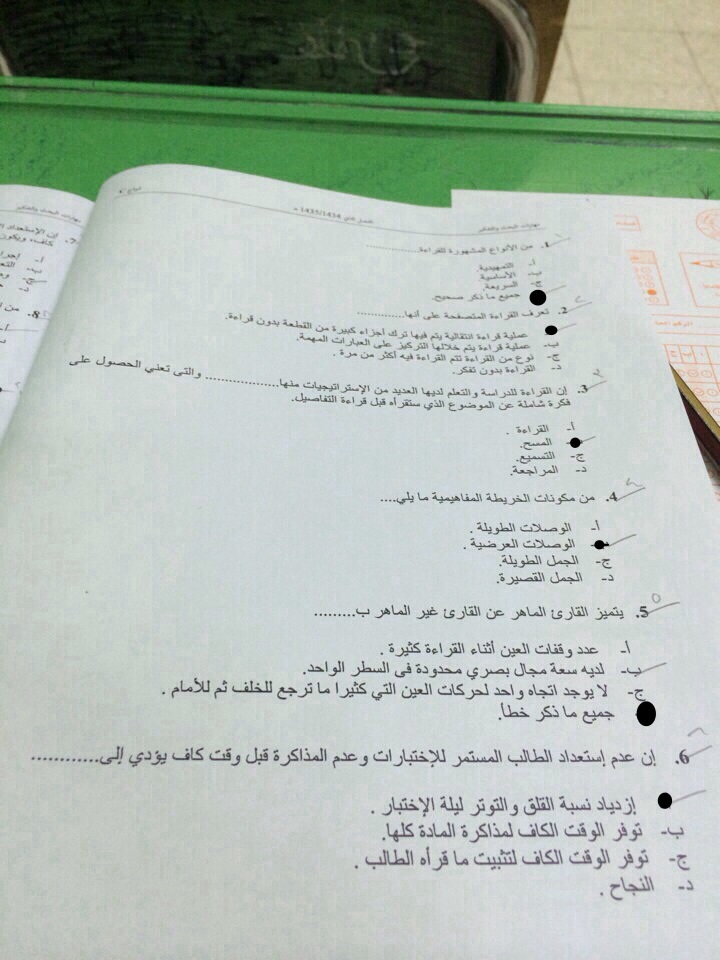 مهارات البحث والتفكير
الفصل الثاني 1435/1434 هـ
نموذج C
1. من الأنواع المشهورة للقراءة............
أ- التمهيدية.
ب- الأساسية.
ج- السريعة.
جميع ما ذكر صحيح.
2. تعرف القراءة المتصفحة على أنها............
عملية قراءة انتقالية يتم فيها ترك أجزاء كبيرة من القطعة بدون قراءة.
ب- عملية قراءة يتم خلالها التركيز على العبارات المهمة.
ج- نوع من القراءة تتم القراءة فيه أكثر من مرة .
د- القراءة بدون تفكر.
3. إن القراءة للدراسة والتعلم لديها العديد من الإستراتيجيات منها.................. والتى تعني الحصول على
فكرة شاملة عن الموضوع الذي ستقرأه قبل قراءة التفاصيل.
أ- القراءة .
المسح.
ج- التسميع.
د- المراجعة.
4. من مكونات الخريطة المفاهيمية ما يلي....
أ- الوصلات الطويلة .
الوصلات العرضية .
ج- الجمل الطويلة.
د- الجمل القصيرة.
5. يتميز القارئ الماهر عن القارئ غير الماهر ب.........
أ- عدد وقفات العين أثناء القراءة كثيرة .
ب- لديه سعة مجال بصري محدودة فى السطر الواحد.
ج- لا يوجد اتجاه واحد لحركات العين التي كثيرا ما ترجع للخلف ثم للأمام .
جميع ما ذكر خطأ.
6. إن عدم إستعداد الطالب المستمر للإختبارات وعدم المذاكرة قبل وقت كاف يؤدي إلى............
إزدياد نسبة القلق والتوتر ليلة الإختبار .
ب- توفر الوقت الكاف لمذاكرة المادة كلها.
ج- توفر الوقت الكاف لتثبيت ما قرأه الطالب .
د- النجاح .
مهارات البحث والتفكير
7. إن الإستعداد
كاف، ويكون
ب- التع
8. من